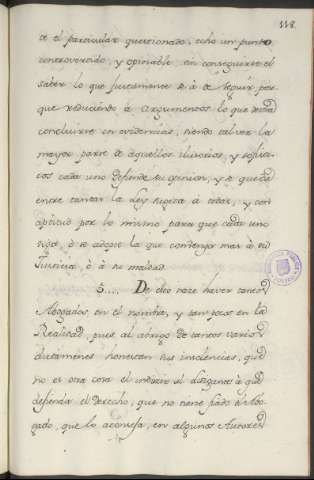 118.
de el particular questionado, echo un punto
controvertido, y opinable sin conseguirse el
saber lo que juntamente se á de seguir, por
que reduciendo á argumentos lo que devia
concluirse en evidencias, siendo tal vez la
mayor parte de aquellos ilusorios, y sofisti-
cos cada uno defiende su opinion, y se queda
entre tantas la Ley sugeta á todas, y con
aptitud por lo mismo para que cada uno
siga, ó se adopte la que contemple mas á su
Justicia, ó á su maldad.
5.... De esto nace haver tantos
Abogados en el nombre, y tan pocos en la
Realidad, pues al abrigo de tantos varios
dictamenes honestan sus insolencias, que
no es otra cosa el induzir al litigante á que
defienda el derecho, que no tiene fiado el Abo-
gado, que lo aconseja, en algunos Autores